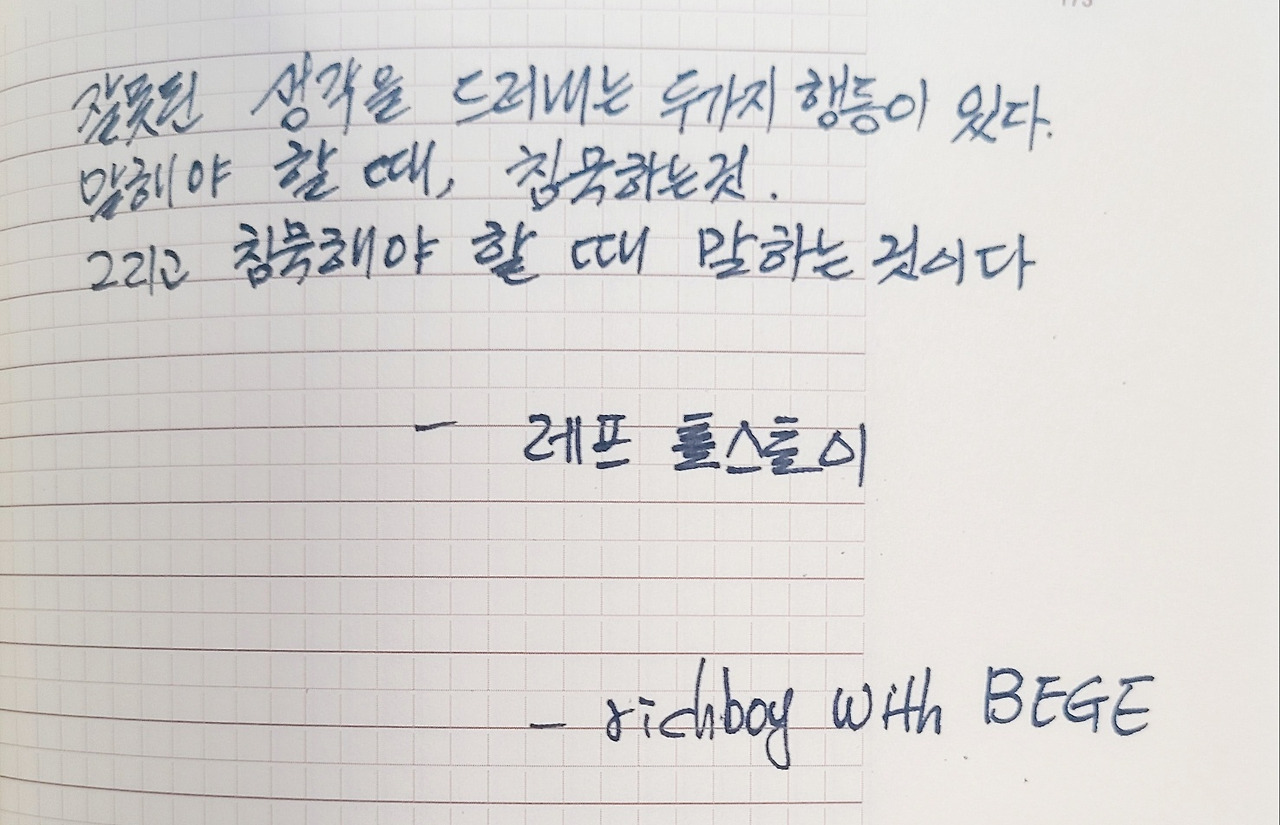 잘못된 생각을 드러내는 두가지 행동이 있다.
말해야 할 때, 침묵하는것.
그리고 침묵해야 할 때 말하는 것이다
- 레프 톨스톨이
- richboy with BEGE